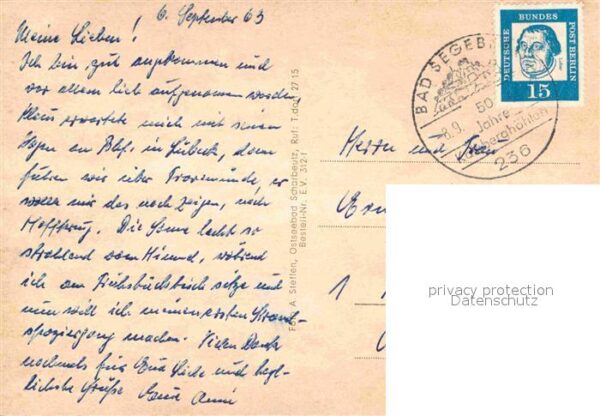 6. September 63
Meine Lieben!
Ich bin gut angekommen und
vor allem lieb aufgenommen worden.
Klaus erwartete mich mit seinem
Wagen am Bhf. in Lübeck, dann
fuhren wir über Travemünde, er
wollte mir das noch zeigen, nach
Haffkrug. Die Sonne lacht so
strahlend vom Himmel, während
ich am Frühstückstisch sitze und
nun will ich meinen ersten Strand-
spaziergang machen. Vielen Dank
nochmals für Eure Liebe und herz-
lichste Grüße Eure Anni
Foto A. Steffen, Ostseebad Scharbeutz, Ruf: T.dorf 2715
Bestell-Nr. E.V. 312.1
BAD SEGEBE
50
Jahre
Kalkberghöhlen
8.9.
236
DEUTSCHE BUNDES POST BERLIN
15
Herrn und Frau
privacy protection
Datenschutz